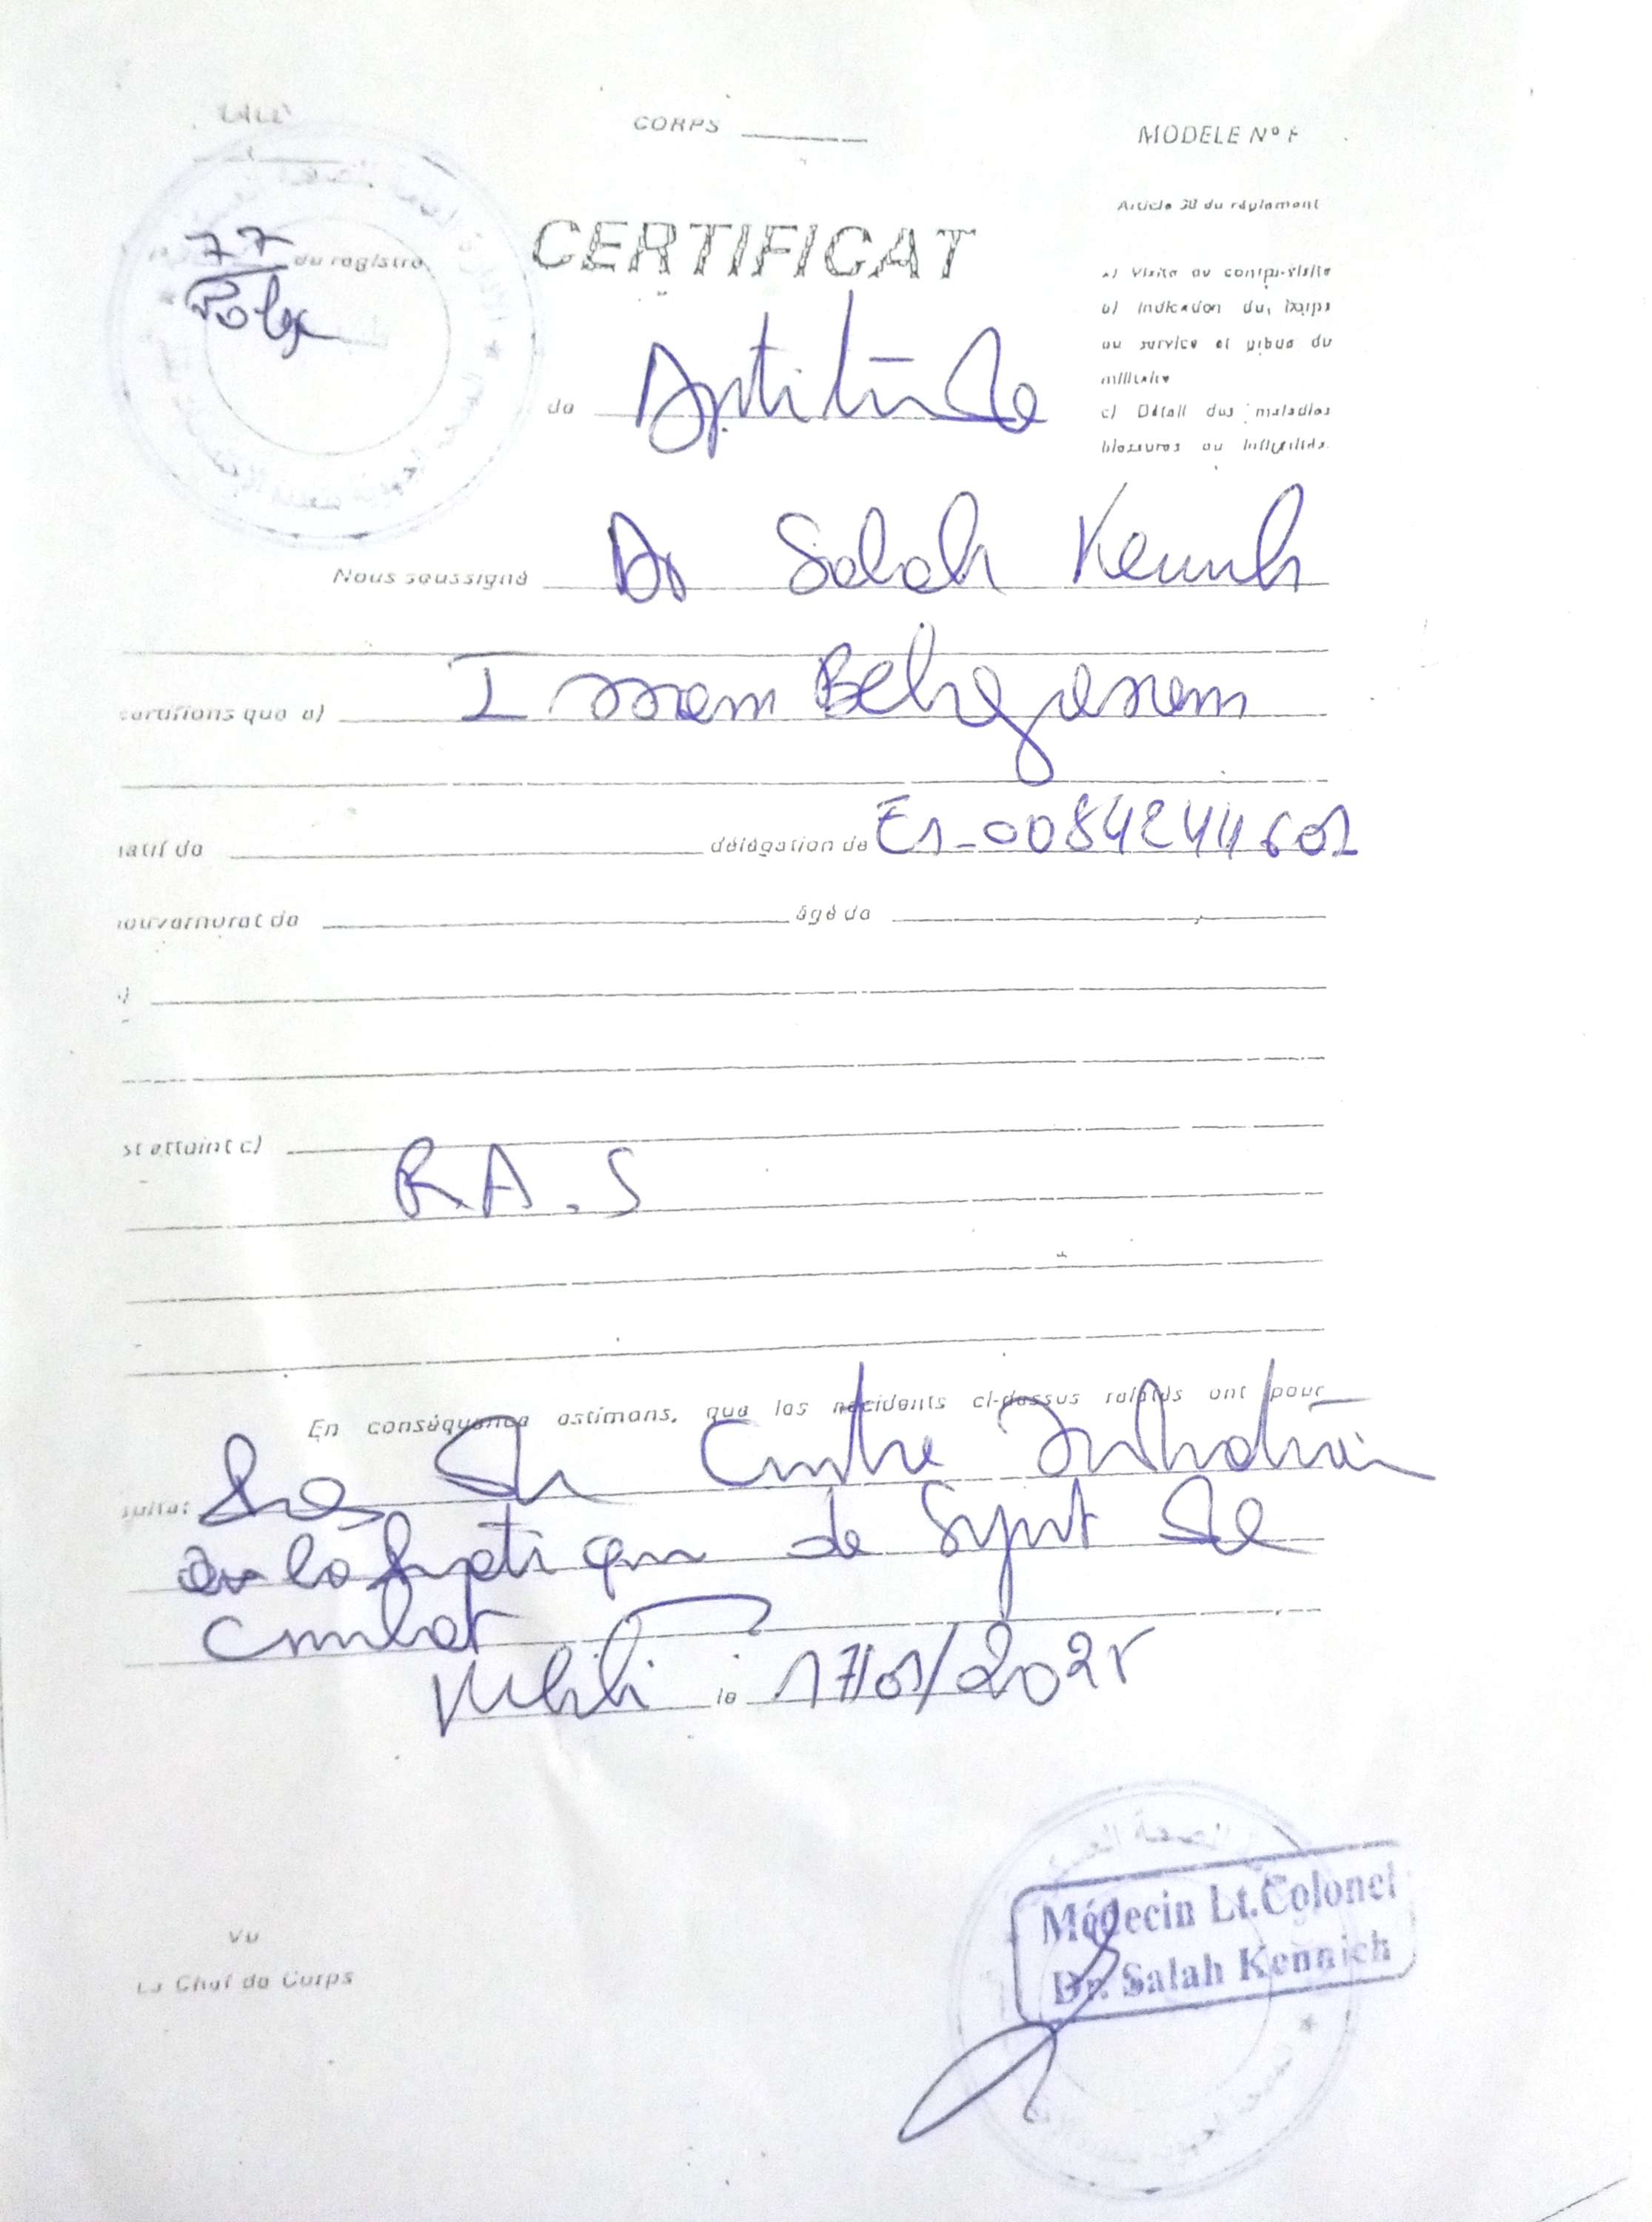 CORPS
MODELE Nº F
Article 30 du règlement
77 du registre
CERTIFICAT
a) Visite ou contre-visite
b) Indication du corps
ou service et
du
militaire
c) Détail des maladies
blessures ou infirmités.
de Aptitude
Nous soussigné Dr Salah Kennich
certifions que a) Issam Belgacem
natif de délégation de E1-0084244602
gouvernorat de âgé de
est atteint c)
R.A.S
En conséquence estimons, que les accidents ci-dessus relatés ont pour
sultat Pas de Contre Indication
à la pratique de Sport de
Combat
le 17/01/2025
Vu
Le Chef de Corps
Médecin Lt.Colonel
Dr. Salah Kennich